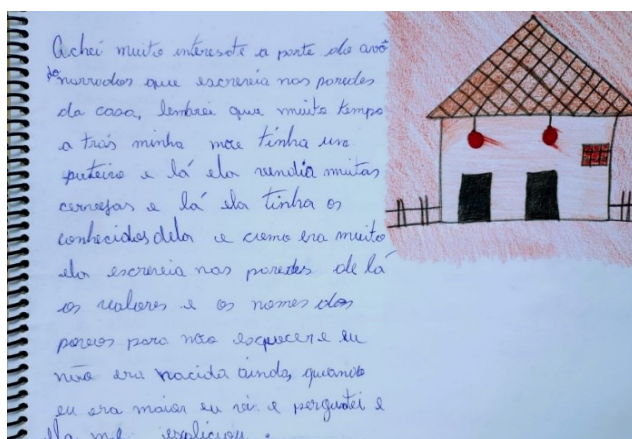 Achei muito interesote a parte do avô
do narrodos que escreveia nas paredes
da casa, lembrei que muito tempo
a trás minha mae tinha um
puteiro e lá ela vendia muitas
cervejas e lá ela tinha os
conhecidos dela e como era muito
ela escreveia nas paredes de lá
os valores e os nomes dos
povos para não esquecer e eu
não era nacida ainda, quando
eu era maior eu vi e perguntei e
ela me explicou.